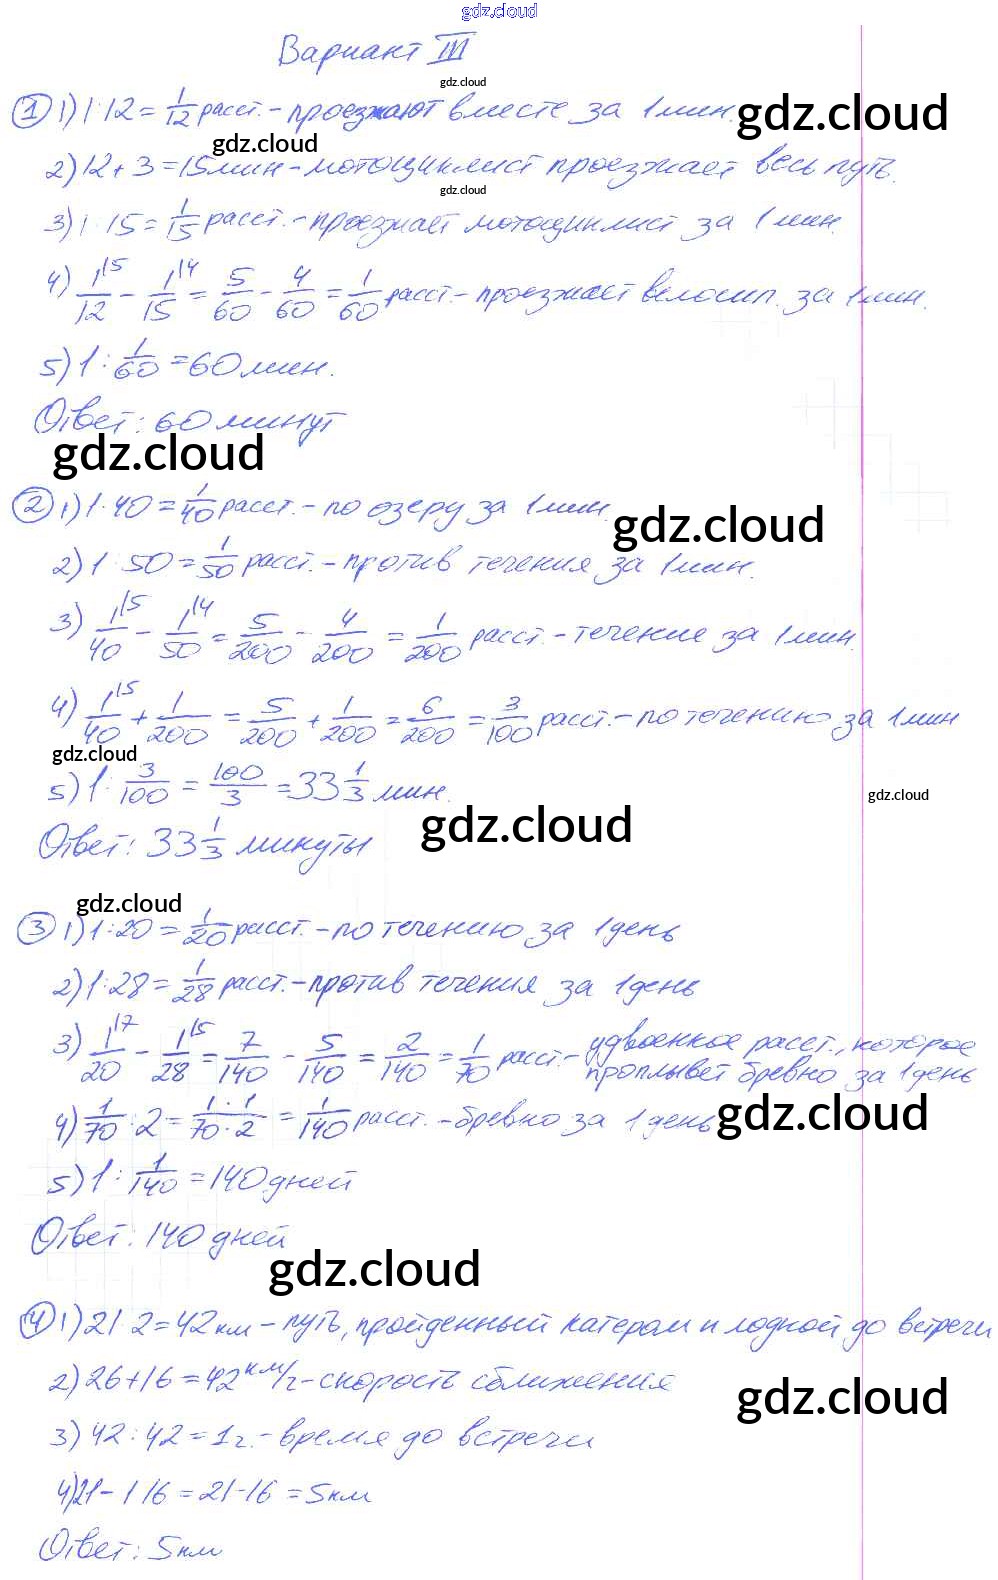 gdz.cloud
Вариант III
gdz.cloud
① 1) 1:12 = 1/12 расст. - проезжают вместе за 1 мин. gdz.cloud
gdz.cloud
2) 12 + 3 = 15 мин - мотоциклист проезжает весь путь.
gdz.cloud
3) 1:15 = 1/15 расст. - проезжает мотоциклист за 1 мин.
4) 1/12 \5 - 1/15 \4 = 5/60 - 4/60 = 1/60 расст. - проезжает велосип. за 1 мин.
5) 1 : 1/60 = 60 мин.
Ответ: 60 минут
gdz.cloud
② 1) 1:40 = 1/40 расст. - по озеру за 1 мин.
gdz.cloud
2) 1:50 = 1/50 расст. - против течения за 1 мин.
3) 1/40 \5 - 1/50 \4 = 5/200 - 4/200 = 1/200 расст. - течение за 1 мин.
4) 1/40 \5 + 1/200 = 5/200 + 1/200 = 6/200 = 3/100 расст. - по течению за 1 мин
gdz.cloud
5) 1 : 3/100 = 100/3 = 33 1/3 мин.
gdz.cloud
Ответ: 33 1/3 минуты
gdz.cloud
gdz.cloud
③ 1) 1:20 = 1/20 расст. - по течению за 1 день
2) 1:28 = 1/28 расст. - против течения за 1 день
3) 1/20 \7 - 1/28 \5 = 7/140 - 5/140 = 2/140 = 1/70 расст. - удвоенное расст., которое
проплывет бревно за 1 день
4) 1/70 : 2 = 1·1/70·2 = 1/140 расст. - бревно за 1 день
gdz.cloud
5) 1 : 1/140 = 140 дней
Ответ: 140 дней
gdz.cloud
④ 1) 21·2 = 42 км - путь, пройденный катером и лодкой до встречи
2) 26 + 16 = 42 км/ч - скорость сближения
gdz.cloud
3) 42 : 42 = 1 ч. - время до встречи
4) 21 - 1·16 = 21 - 16 = 5 км
Ответ: 5 км